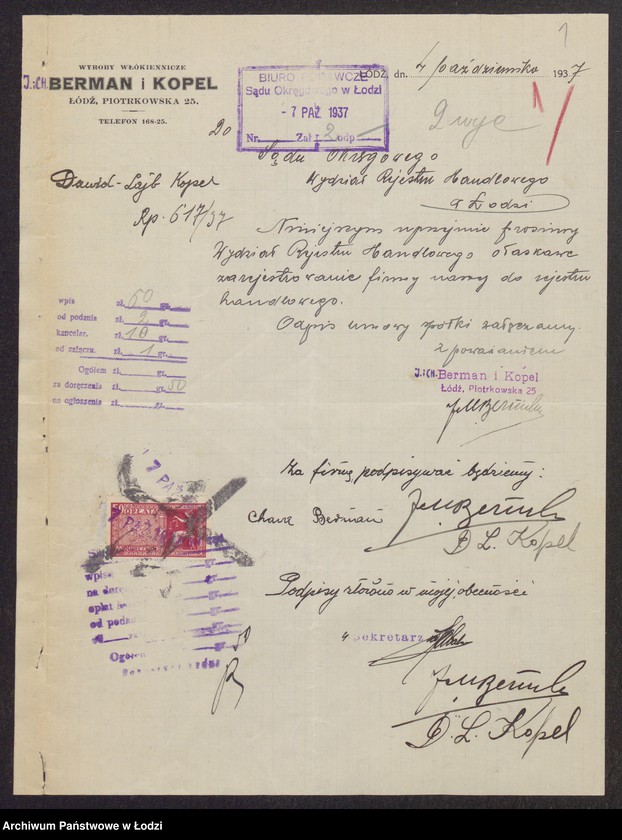 1
WYROBY WŁÓKIENNICZE
J. i CH. BERMAN i KOPEL
ŁÓDŹ, PIOTRKOWSKA 25.
TELEFON 168-25.
BIURO PODAWCZE
Sądu Okręgowego w Łodzi
- 7 PAŹ 1937
Nr. Zał 2 odp
ŁÓDŹ, dn. 4 października 1937
Do
Sądu Okręgowego
Wydział Rejestru Handlowego
w Łodzi
Dawid-Lajb Kopel
Rp. 617/37
Niniejszym uprzejmie prosimy
Wydział Rejestru Handlowego o łaskawe
zarejestrowanie firmy naszej do rejestru
handlowego.
Odpis umowy spółki załączamy.
z poważaniem
wpis zł. 60 gr.
od podania zł. 2 gr.
kancelar. zł. 10 gr.
od załączn. zł. 1 gr.
Ogółem zł. gr.
za doręczenie zł. gr. 50
na ogłoszenie zł. gr.
J. i CH. Berman i Kopel
Łódź, Piotrkowska 25
J. M. Berman
Za firmę podpisywać będziemy:
Chana Berman J. M. Berman
D. L. Kopel
7 PAŹ
50
OPŁATA
wpis
opłat
od podan
Ogółem
gr
50
Podpisy złożono w mojej obecności
Sekretarz
J. M. Berman
D. L. Kopel
Archiwum Państwowe w Łodzi